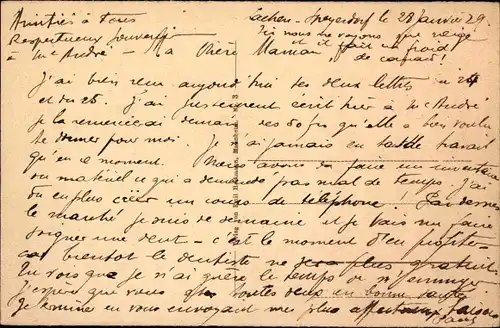 Amitiés à tous
Respectueux souvenir
à Mme André —
Lachen-Speyerdorf le 28 Janvier 29
Ici nous ne voyons que neige
et il fait un froid
de canard!
Ma Chère Maman
J'ai bien reçu aujourd'hui tes deux lettres du 24
et du 25. J'ai justement écrit hier à Mme André
Je la remercierai demain des 50 frs qu'elle a bien voulu
te donner pour moi. Je n'ai jamais eu tant de travail
qu'en ce moment. Nous avons dû faire un inventaire
du matériel ce qui a demandé pas mal de temps. J'ai
dû en plus créer un cours de téléphone! Par dessus
le marché je suis de semaine et je vais me faire
soigner une dent — c'est le moment d'en profiter
car bientôt le dentiste ne sera plus gratuit
Tu vois que je n'ai guère le temps de m'ennuyer
J'espère que vous êtes toutes deux en bonne santé
Je termine en vous envoyant mes plus affectueux baisers